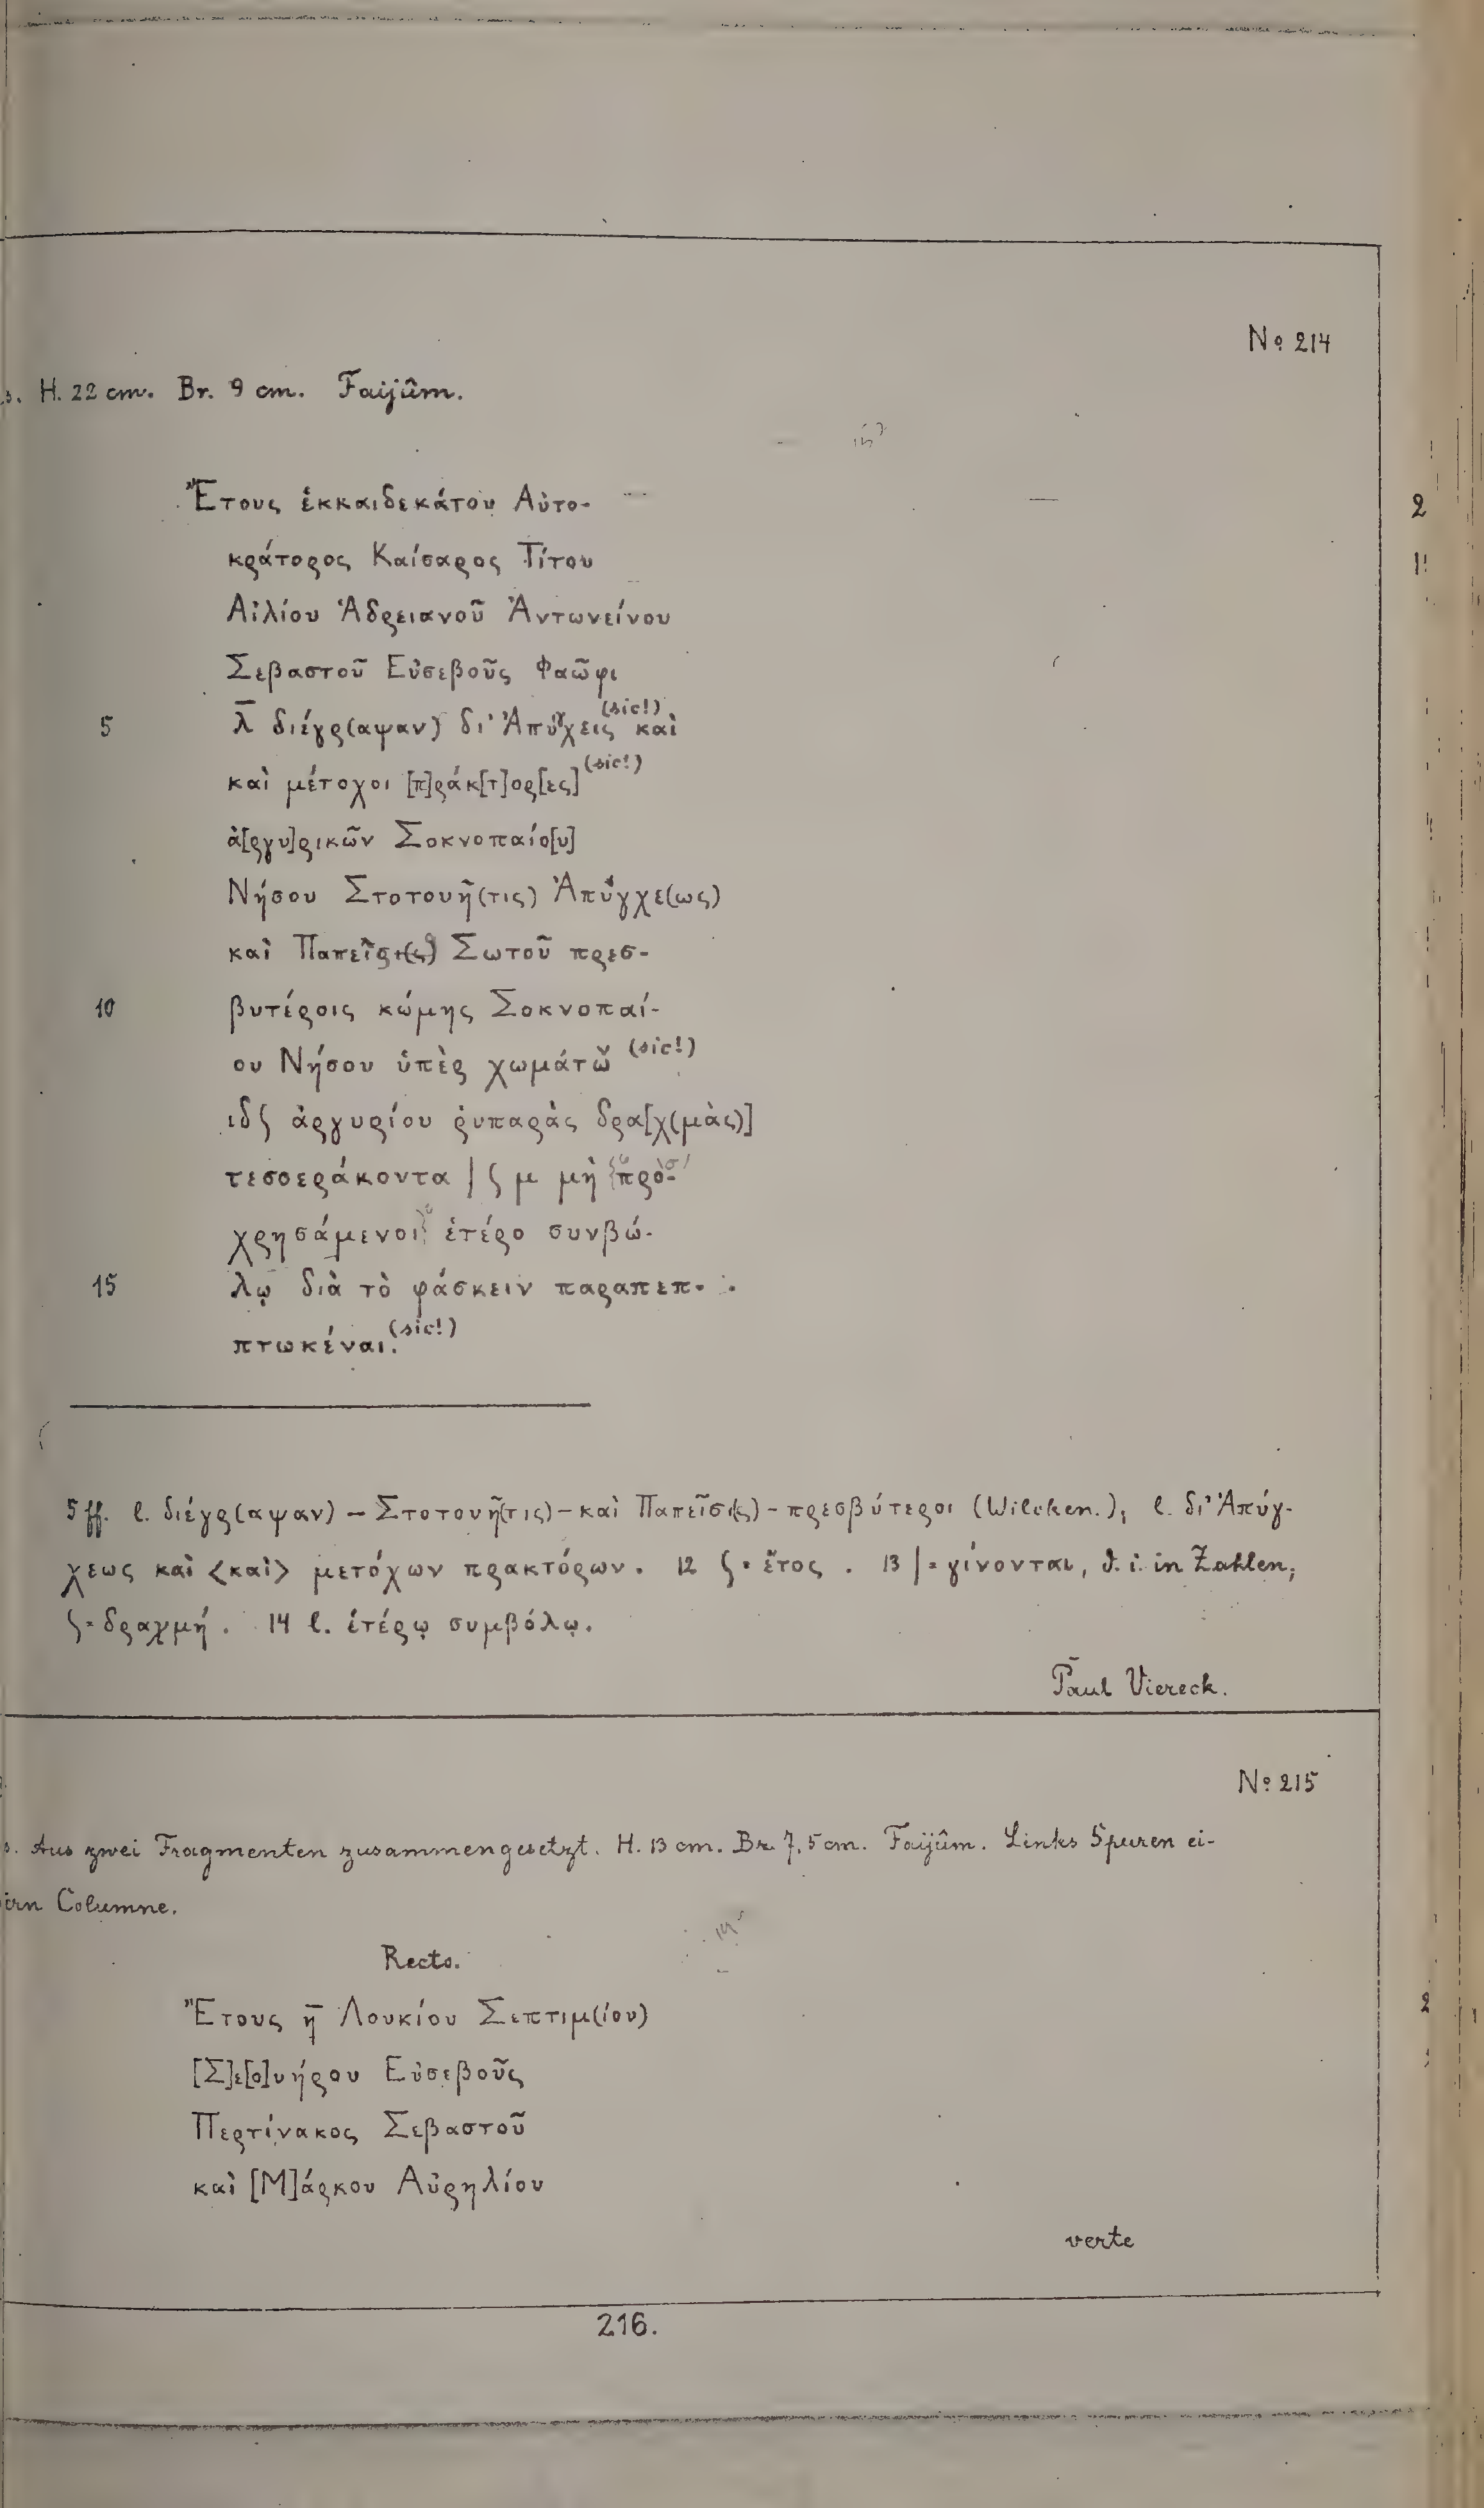 No 214
H. 22 cm. Br. 9 cm. Faijûm.
Ἔτους ἑκκαιδεκάτου Αὐτο-
κράτορος Καίσαρος Τίτου
Αἰλίου Ἁδρειανοῦ Ἀντωνείνου
Σεβαστοῦ Εὐσεβοῦς Φαῶφι
5 λ̅ διέγρ(αψαν) δι' Ἀπύγχεις (sic!) καὶ
καὶ μέτοχοι [π]ράκ[τ]ορ[ες] (sic!)
ἀ[ργυ]ρικῶν Σοκνοπαίο[υ]
Νήσου Στοτουῆ(τις) Ἀπύγχε(ως)
καὶ Παπεῖς Σωτοῦ πρεσ-
10 βυτέροις κώμης Σοκνοπαί-
ου Νήσου ὑπὲρ χωμάτω̆ (sic!)
ιδʃ ἀργυρίου ῥυπαρὰς δρα[χ(μὰς)]
τεσσεράκοντα | ʃ μ μὴ προσ-
χρησάμενοι ἑτέρο συνβώ-
15 λῳ διὰ τὸ φάσκειν παραπεπ-
πτωκέναι. (sic!)
5 ff. l. διέγρ(αψαν) – Στοτουῆ(τις) – καὶ Παπεῖσι(ς) – πρεσβύτεροι (Wilcken.); l. δι' Ἀπύγ-
χεως καὶ <καὶ> μετόχων πρακτόρων. 12 ʃ = ἔτος. 13 | = γίνονται, d. i. in Zahlen;
ʃ = δραχμή. 14 l. ἑτέρῳ συμβόλῳ.
Paul Viereck.
No 215
Aus zwei Fragmenten zusammengesetzt. H. 13 cm. Br. 7,5 cm. Faijûm. Links Spuren ei-
Columne.
Recto.
Ἔτους η̅ Λουκίου Σεπτιμ(ίου)
[Σ]ε[ο]υήρου Εὐσεβοῦς
Περτίνακος Σεβαστοῦ
καὶ [Μ]άρκου Αὐρηλίου
verte
216.